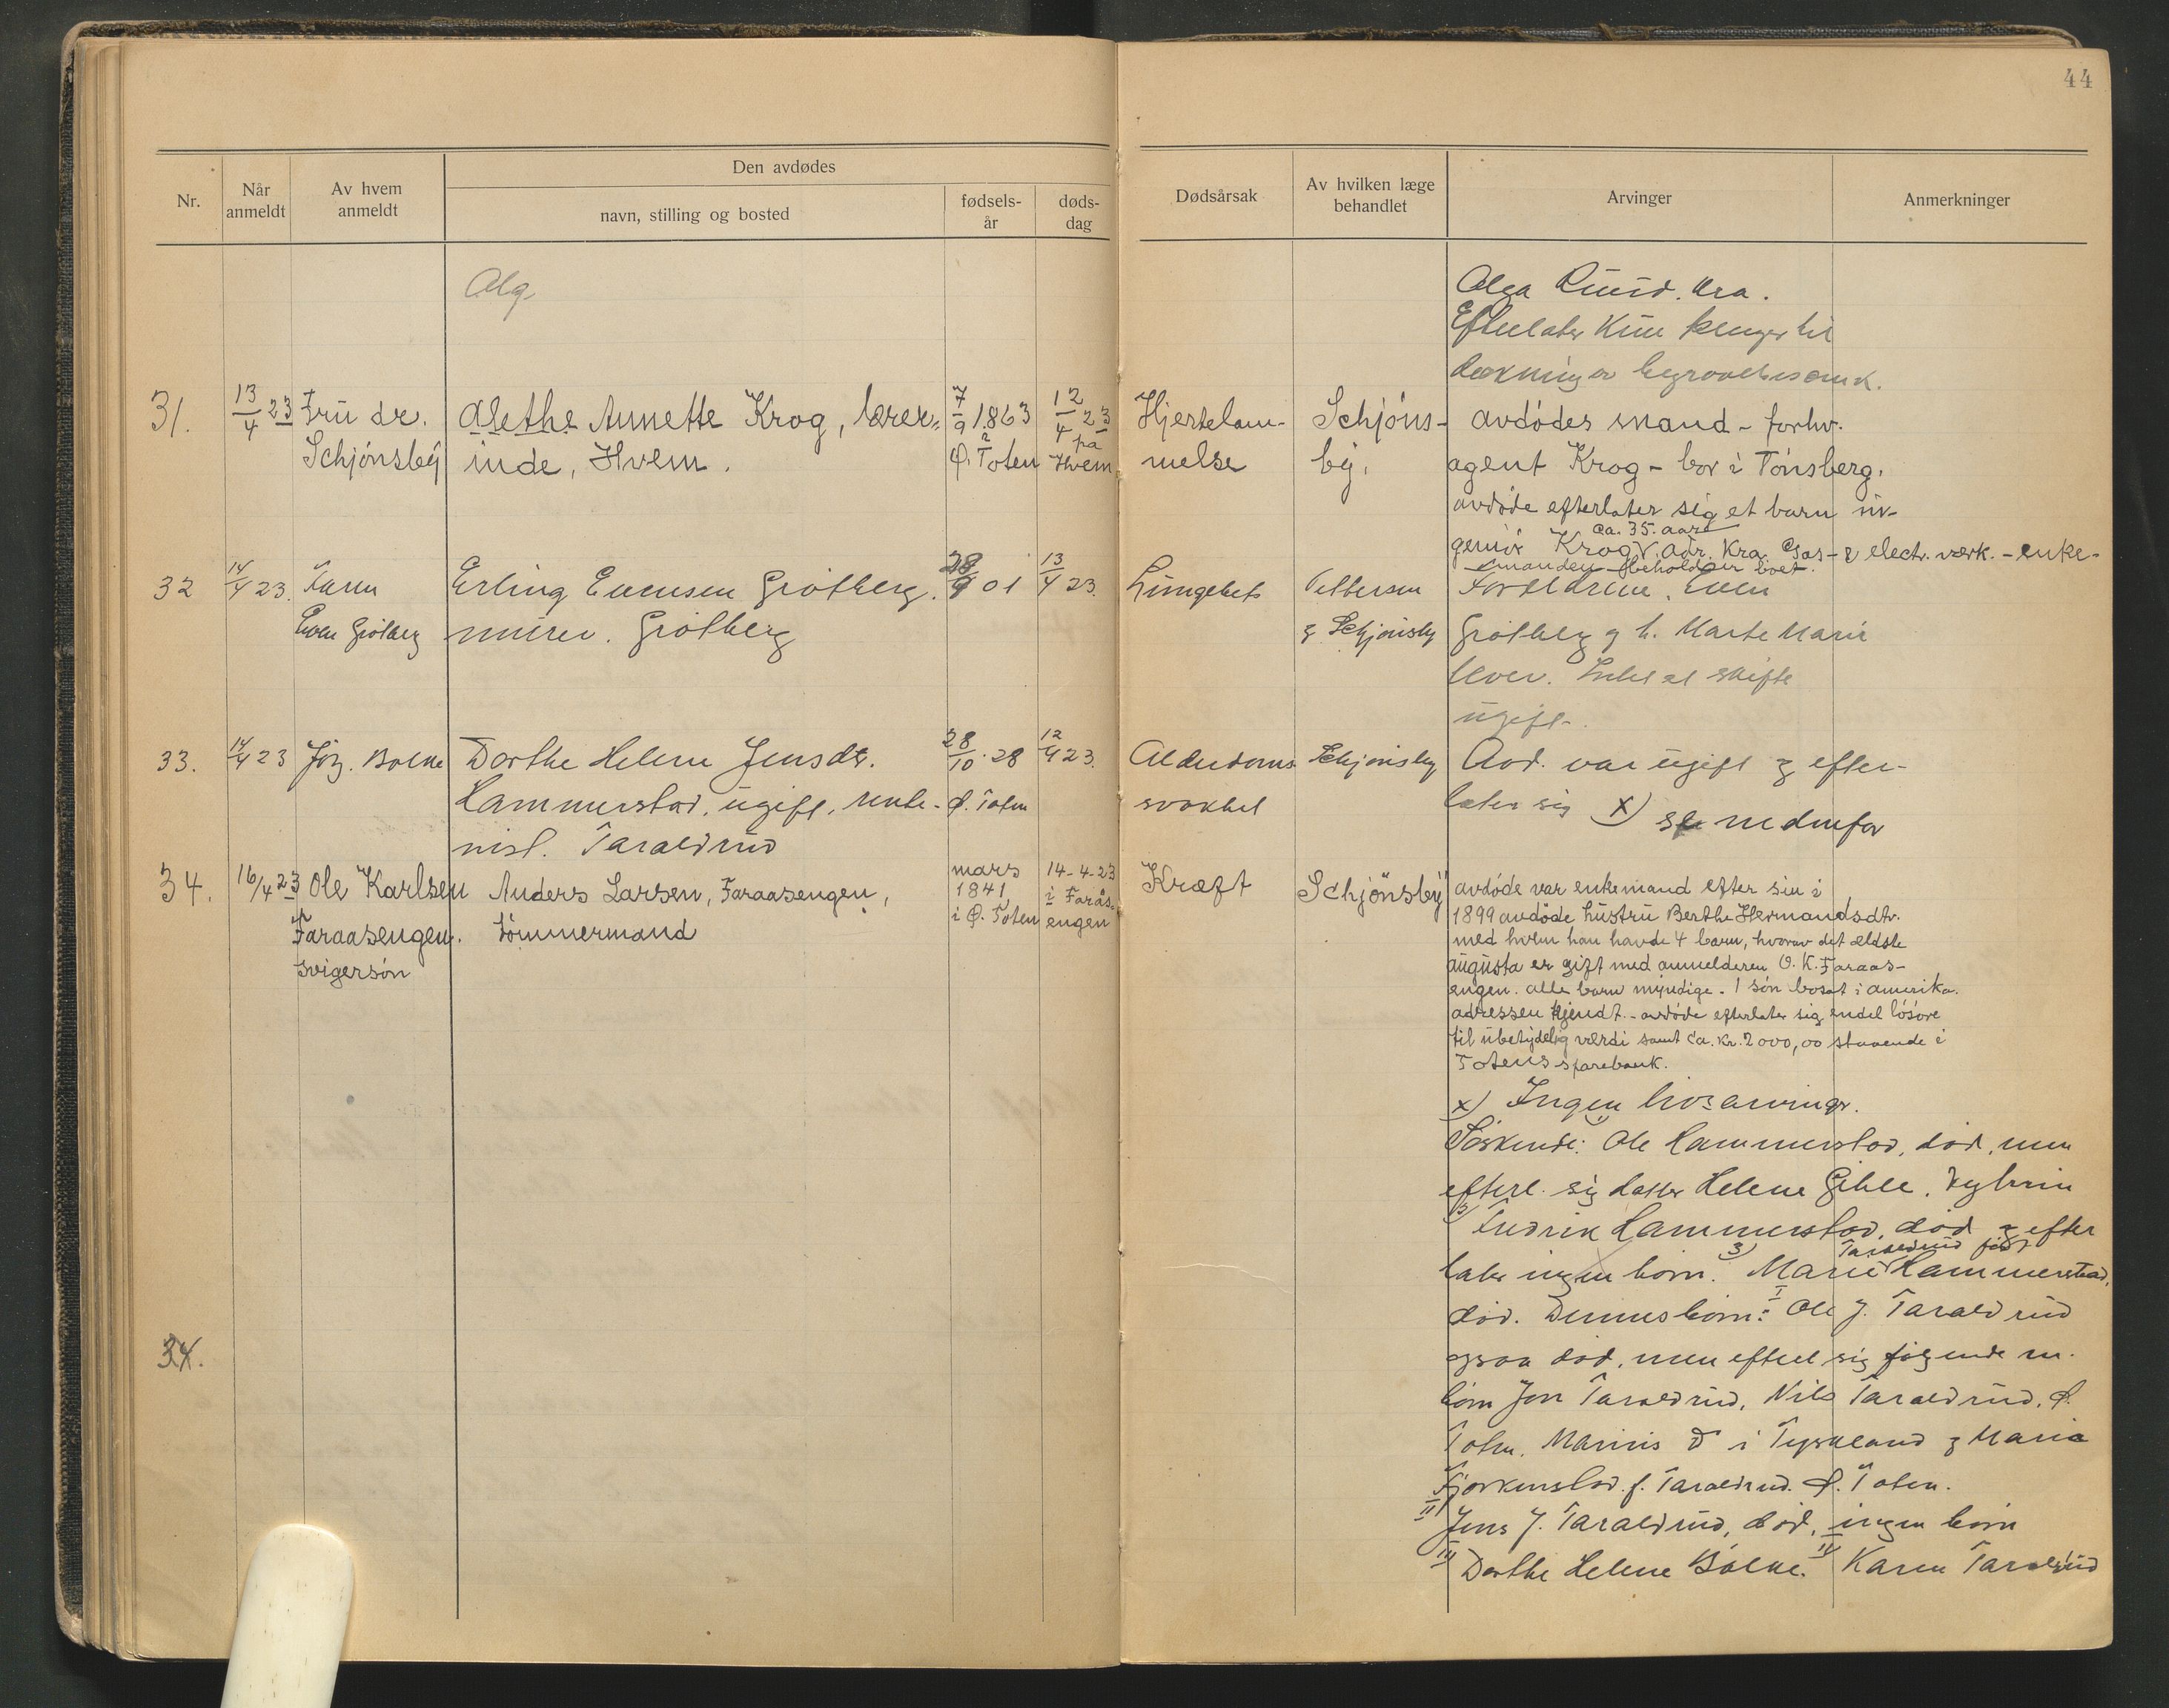 44
Nr.
Når anmeldt
Av hvem anmeldt
Den avdødes
navn, stilling og bosted
fødsels-år
døds-dag
Dødsårsak
Av hvilken læge behandlet
Arvinger
Anmerkninger
Alg
Olga Ruud. Kra.
Efterlater kun penger til
dækning av begravelsesomk.
31.
13/4 23
Fru dr.
Schjønsby
Alethe Annette Krog, lærer-
inde, Hvem.
7/9 1863
Ø. Toten
12/4 23
på
Hvem
Hjertelam-
melse
Schjøns-
by.
Avdødes mand - forhv.
agent Krog - bor i Tønsberg.
avdøde efterlater sig et barn in-
ca. 35. aar
geniør Krog. adr. Kra. Gas- & electr. verk. - enke-
manden beholder boet.
32
14/4 23.
Faren
Even Grøtberg
Erling Evensen Grøtberg.
murer. Grøtberg
28/9 01
13/4 23.
Lungebet.
Pettersen
& Schjønsby
Forældrene, Even
Grøtberg g h. Marte Marie
lever. Intet at skifte
ugift.
33.
14/4 23
Jørg. Bolke
Dorthe Helene Jensdtr.
Hammerstad, ugift, rente-
nist. Taraldrud
28/10 28
Ø. Toten
12/4 23.
Alderdoms
svakhet
Schjønsby
Avd. var ugift & efter-
later sig x) se nedenfor
34.
16/4 23
Ole Karlsen
Faraasengen.
svigersøn
Anders Larsen, Faraasengen,
tømmermand
mars
1841
i Ø. Toten
14-4-23
i Farås-
engen
Kræft
Schjønsby
avdøde var enkemand efter sin i
1899 avdøde hustru Berthe Hermandsdtr.
med hvem han havde 4 barn, hvorav det ældste
Augusta er gift med anmelderen O. K. Faraas-
engen. alle barn myndige. 1 søn bosat i Amerika.
adressen kjendt. - avdøde efterlater sig endel løsøre
til ubetydelig værdi samt ca. kr. 2000,00 staaende i
Totens sparebank.
x) Ingen livsarvinger.
Søskende: Ole Hammerstad, død, men
efterl. sig datter Helene Gihle,
2) Fredrik Hammerstad, død & efter
later ingen børn. 3) Marie Hammerstad,
Taraldrud født
død. Dennes børn: I Ole J. Taraldrud
ogsaa død, men efterl sig følgende
børn Jon Taraldrud, Nils Taraldrud, Ø.
Toten, Marius T i Tyskland & Maria
Fjorkenstad f. Taraldrud. Ø. Toten.
II Jens J. Taraldrud, død, ingen børn
III Dorthe Helene Bolke. IV Karen Taraldrud
34.